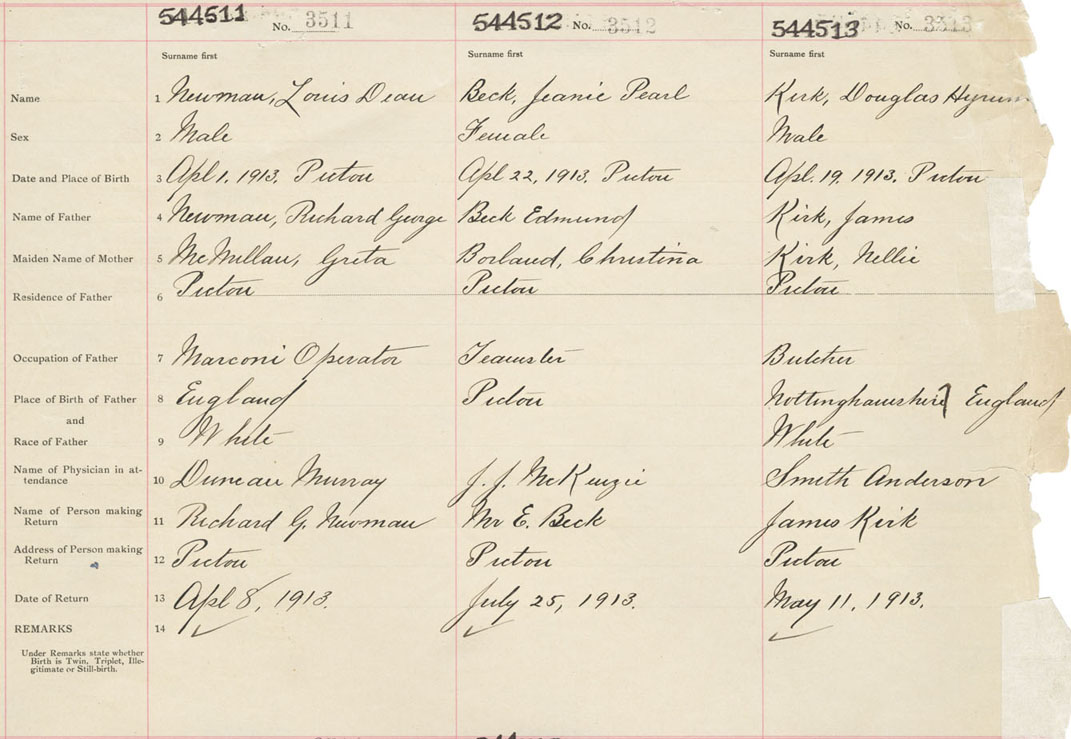 544511 No. 3511 544512 No. 3512 544513 No. 3513
Surname first Surname first Surname first
Name 1 Newman, Louis Dean Beck, Jeanie Pearl Kirk, Douglas Hyrum
Sex 2 Male Female Male
Date and Place of Birth 3 Apl 1, 1913. Pictou Apl 22, 1913. Pictou Apl. 19, 1913. Pictou
Name of Father 4 Newman, Richard George Beck Edmund Kirk, James
Maiden Name of Mother 5 McMillan, Greta Borland, Christina Kirk, Nellie
Residence of Father 6 Pictou Pictou Pictou
Occupation of Father 7 Marconi Operator Teamster Butcher
Place of Birth of Father 8 England Pictou Nottinghamshire, England
and
Race of Father 9 White White
Name of Physician in at-
tendance 10 Duncan Murray J. J. McKenzie Smith Anderson
Name of Person making
Return 11 Richard G. Newman Mr E. Beck James Kirk
Address of Person making
Return 12 Pictou Pictou Pictou
Date of Return 13 Apl 8, 1913. July 25, 1913. May 11, 1913.
REMARKS 14
Under Remarks state whether
Birth is Twin, Triplet, Ille-
gitimate or Still-birth.